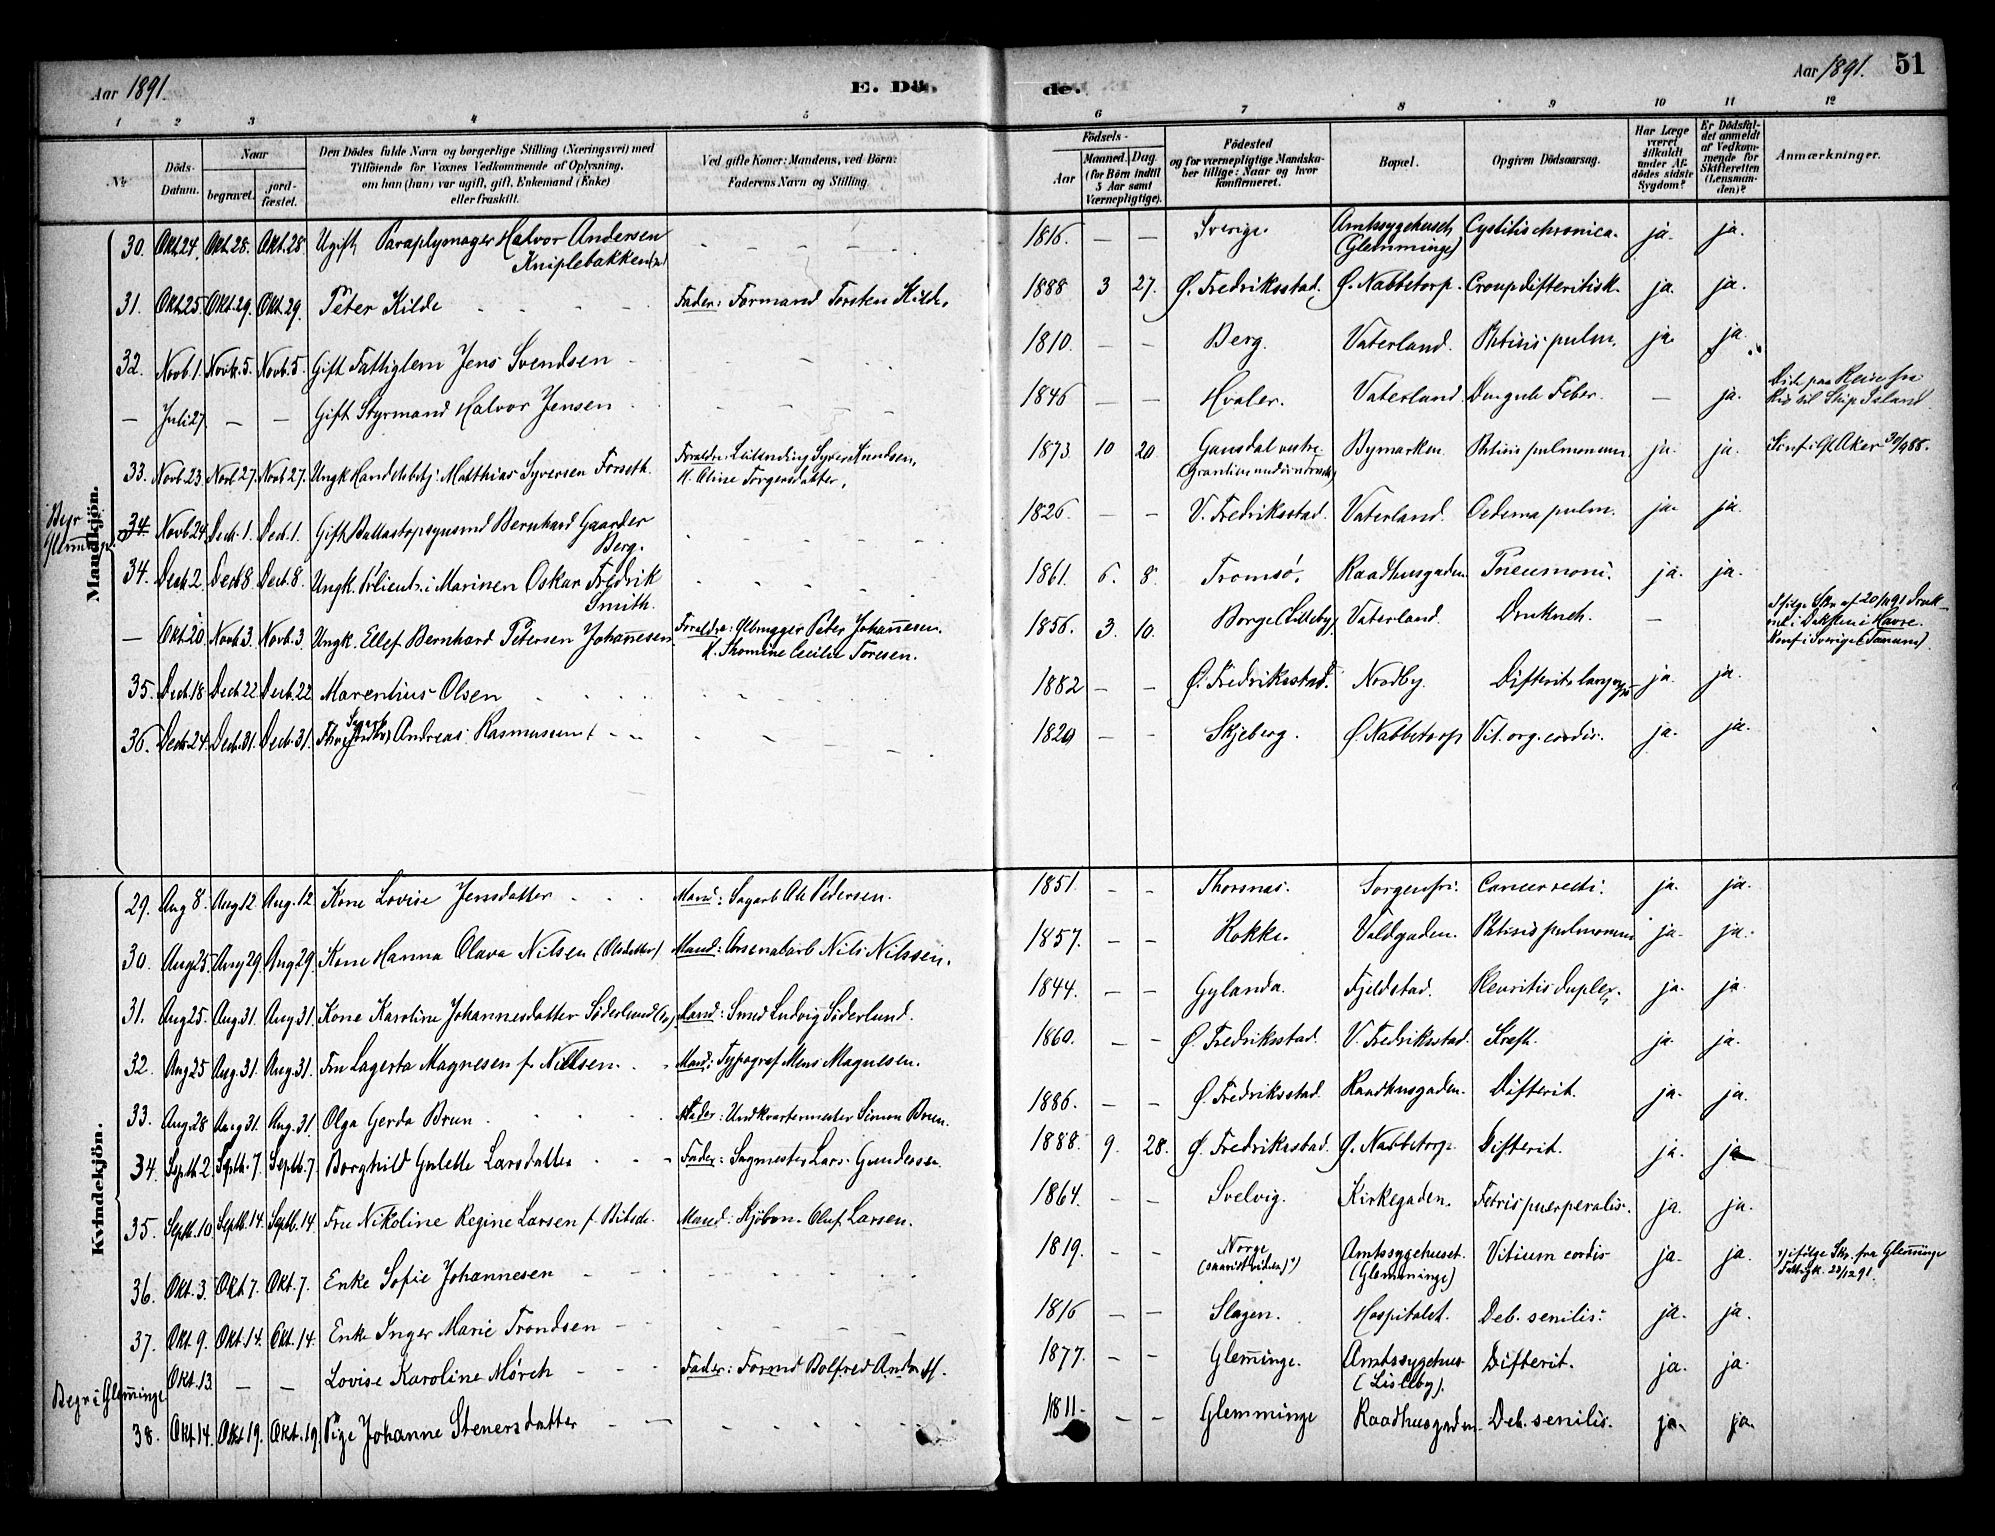 Aar 1891.
E. Dö
de.
Aar 1891. 51
1 2 3 4 5 6 7 8 9 10 11 12
No
Döds-Datum.
Naar
begravet.
jord-fæstet.
Den Dödes fulde Navn og borgerlige Stilling (Næringsvei) med
Tilföiende for Voxnes Vedkommende af Oplysning,
om han (hun) var ugift, gift, Enkemand (Enke)
eller fraskilt.
Ved gifte Koner: Mandens, ved Börn:
Faderens Navn og Stilling.
Födsels-
Aar
Maaned. Dag.
(for Börn indtil
5 Aar samt
Værnepligtige).
Födested
og for værnepligtige Mandska-
ber tillige: Naar og hvor
konfirmeret.
Bopæl.
Opgiven Dödsaarsag.
Har Læge
været
tilkaldt
under Af-
dödes sidste
Sygdom?
Er Dödsfal-
det anmeldt
af Vedkom-
mende for
Skifteretten
(Lensman-
den)?
Anmærkninger.
Mandkjön.
30. Okt.24. Okt.28. Okt.28 Ugift Paraplymager Halvor Andersen 1816. — — Sverige. Amtssygehuset Cystitis chronica. ja. ja.
Kniplebakken (Glemminge)
31. Okt.25. Okt.29. Okt.29. Peter Kilde Fader: Formand Torsten Kilde. 1888 3 27. Ø. Fredriksstad. Ø. Nabbetorp. Croup difteritisk. ja. ja.
32. Novb.1. Novb.5. Novb.5. Gift Fattiglem Jens Svendsen 1810. — — Berg. Vaterland. Phtisis pulm. ja. ja.
— Juli 27. — — Gift Styrmand Halvor Jensen 1846 — — Hvaler. Vaterland. Den gule Feber. — ja. Död paa Reise fra
Rio til Ship Island.
33. Novb.23. Novb.27. Novb.27. Ungk. Handelsbetj. Matthias Syversen Forseth. Forældre: Syver Knudsen, 1873. 10 20 Gausdal vestre Bymarken. Phtisis pulmonum ja. ja. Konf. i Gl. Aker 30/9 88.
H. Oline Torgersdatter.
Begr. Glemminge
34 Novb.24. Decb.1. Decb.1. Gift Ballastopsynsmd Bernhard Gaarder 1826. — — V. Fredriksstad. Vaterland. Oedema pulm. ja. ja.
Berg.
34. Decb.2. Decb.8. Decb.8. Ungk. i Marinen Oskar Fredrik 1861. 6. 8. Tromsø. Raadhusgaden. Pneumoni. ja. ja.
Smith.
— Okt.20 Novb.3. Novb.3. Ungk. Ellef Bernhard Petersen Johannesen Forældre: Peter Johannesen. 1856. 3. 10. Borge (Lilleby) Vaterland. Druknet. — Ifølge Skr. af 20/11 91 druk-
H. Thomine Cecilie Toresen. net i Dokken i Havre.
Konf. i Sverige
35. Decb.18 Decb.22 Decb.22 Marentius Olsen 1882 — — Ø. Fredriksstad. Nordby. Difterit. laryngis ja. ja.
36. Decb.24. Decb.31. Decb.31. Andreas Rasmussen 1820 — — Skjeberg. Ø. Nabbetorp Vit. org. cordis. ja. ja.
Kvindekjön.
29. Aug 8. Aug 12. Aug. 12 Kone Lovise Jensdatter Mand: Sagarb. Ole Pedersen. 1851. - - Thorsnæs. Sorgenfri. Cancer recti. ja. ja.
30. Aug 25. Aug 29. Aug 29. Kone Hanna Olava Nilsen (Olsdatter) Mand: Arsenalarb. Nils Nilssen. 1857. - — Rokke. Voldgaden. Phtisis pulmonum ja. ja.
31. Aug 25. Aug. 31. Aug 31. Kone Karoline Johannesdatter Söderlund Mand: Smed Ludvig Söderlund. 1844. — — Gylanda. Fjeldstad. Pleuritis duplex. ja. ja.
32. Aug 25 Aug. 31. Aug. 31. Fru Lagerta Magnesen f. Nielsen. Mand: Typograf Mons Magnesen. 1860. — — Ø. Fredriksstad. V. Fredriksstad. Kræft. ja. ja.
33. Aug 28 Aug 31. Aug. 31. Olga Gerda Brun Fader: Undkvartermester Simon Brun. 1886. — — Ø. Fredriksstad. Raadhusgaden. Difterit. ja. ja.
34. Septb.2 Septb.7. Septb.7 Borghild Gulette Larsdatter Fader: Sagmester Lars Gundersen. 1888. 9. 28. Ø. Fredriksstad. Ø. Nabbetorp. Difterit. ja. ja
35. Septb.10. Septb.14. Septb.14. Fru Nikoline Regine Larsen f. Mand: Kjöbm. Oluf Larsen. 1864. — — Svelvig. Kirkegaden. Febris puerperalis. ja. ja.
36. Okt. 3. Okt 7. Okt. 7. Enke Sofie Johannesen 1819. — — Norge Amtssygehuset. Vitium cordis ja. ja. *) ifölge Skr. fra Glemminge
(Glemminge) Fattigk. 23/12 91.
37. Okt. 9. Okt. 14. Okt. 14. Enke Inger Marie Trondsen 1816 — — Slagen. Hospitalet. Deb. senilis. ja. ja.
Begr. i Glemminge
Okt. 13. — — Lovise Karoline Mörch Fader: Formd 1877. - — Glemminge. Amtssygehus Difterit. ja. ja.
(Lisleby).
38. Okt. 14. Okt 19. Okt. 19 Pige Johanne Stenersdatter 1811. — — Glemminge Raadhusgaden Deb. senilis. ja. ja.